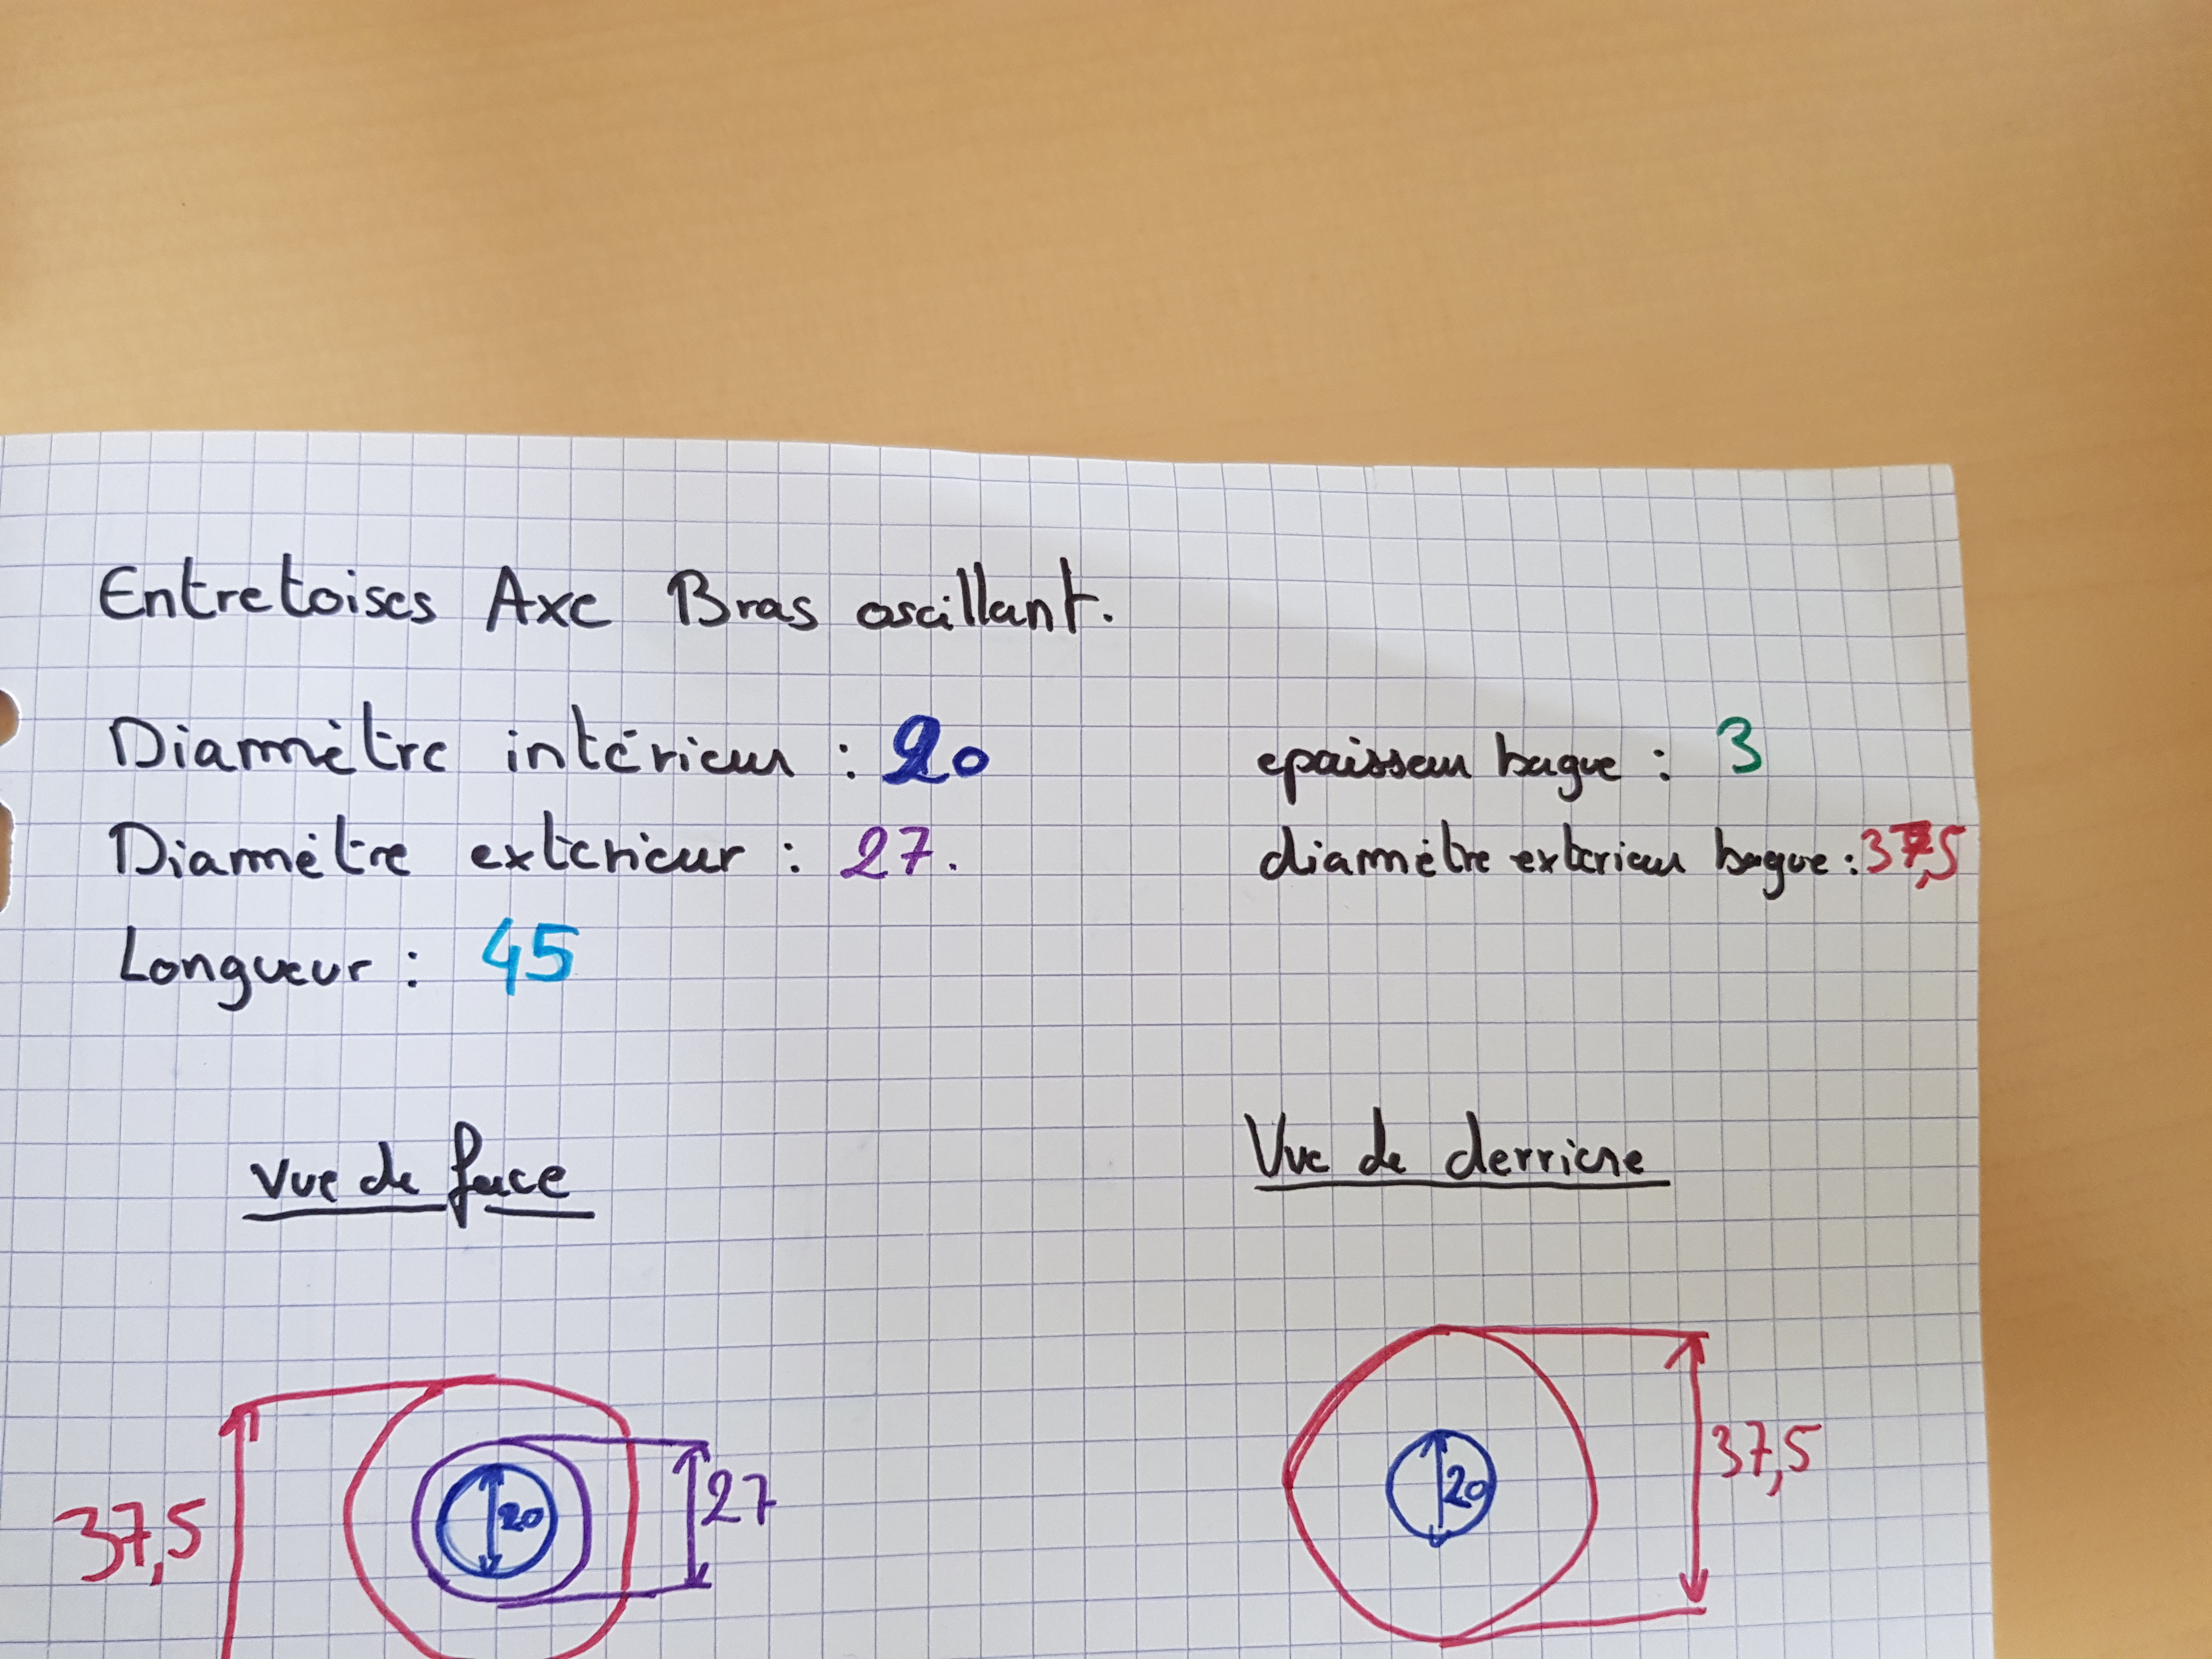 Entretoises Axe Bras oscillant.
Diamètre intérieur : 20
epaisseur bague : 3
Diamètre extérieur : 27.
diamètre exterieur bague : 37,5
Longueur : 45
Vue de face
Vue de derriere
37,5
20
27
20
37,5